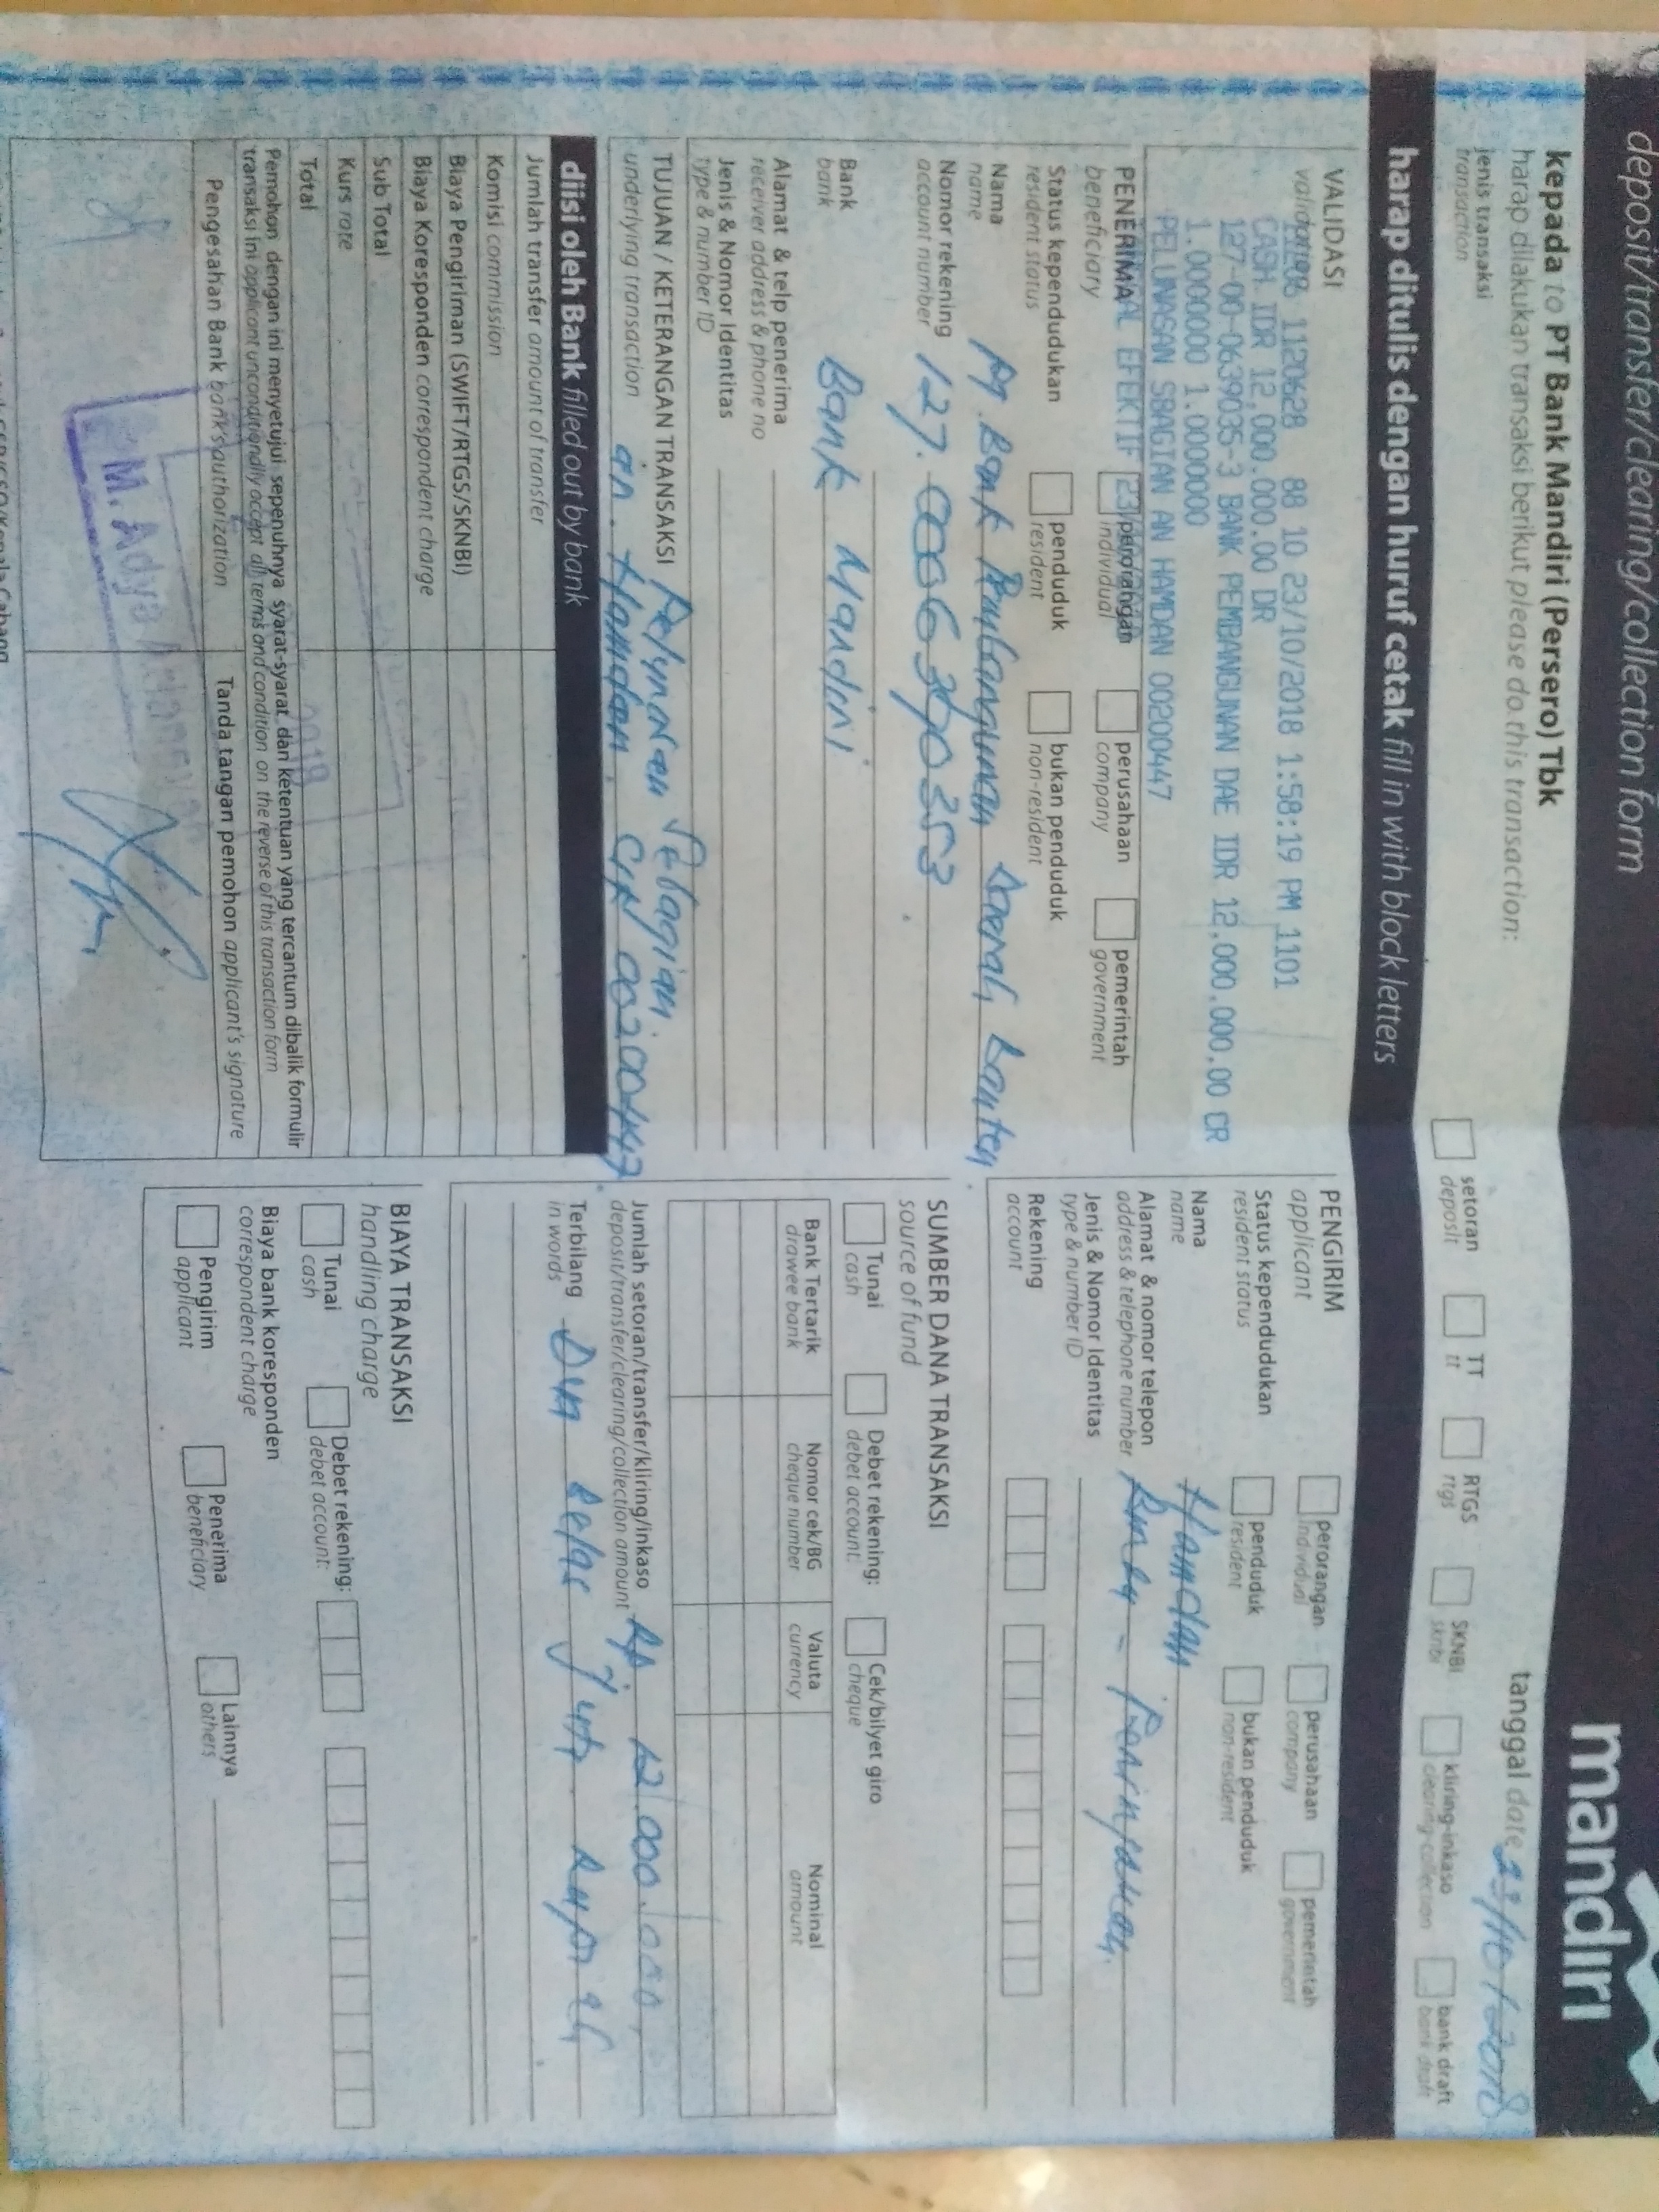 deposit/transfer/clearing/collection form
mandiri
kepada to PT Bank Mandiri (Persero) Tbk
harap dilakukan transaksi berikut please do this transaction:
tanggal date 23/10/2018
jenis transaksi
transaction
setoran
deposit
TT
tt
RTGS
rtgs
SKNBI
sknbi
kliring-inkaso
clearing-collection
bank draft
bank draft
harap ditulis dengan huruf cetak fill in with block letters
VALIDASI
validation
1120628 88 10 23/10/2018 1:58:19 PM 1101
CASH IDR 12,000,000.00 DR
127-00-0639035-3 BANK PEMBANGUNAN DAE IDR 12,000,000.00 CR
1.0000000 1.0000000
PELUNASAN SBAGIAN AN HAMDAN 00200447
EFEKTIF
PENERIMA
beneficiary
perorangan
individual
perusahaan
company
pemerintah
government
Status kependudukan
resident status
penduduk
resident
bukan penduduk
non-resident
Nama
name
Bank Pembangunan Daerah Banten
Nomor rekening
account number
127.0006390353
Bank
bank
Bank Mandiri
Alamat & telp penerima
receiver address & phone no
Jenis & Nomor Identitas
type & number ID
TUJUAN / KETERANGAN TRANSAKSI
underlying transaction
Pelunasan Sebagian.
an. Hamdan. 00200447
diisi oleh Bank filled out by bank
Jumlah transfer amount of transfer
Komisi commission
Biaya Pengiriman (SWIFT/RTGS/SKNBI)
Biaya Koresponden correspondent charge
Sub Total
Kurs rate
Total
Pemohon dengan ini menyetujui sepenuhnya syarat-syarat dan ketentuan yang tercantum dibalik formulir
transaksi ini applicant unconditionally accept all terms and condition on the reverse of this transaction form
Pengesahan Bank bank's authorization
Tanda tangan pemohon applicant's signature
M. Adya
PENGIRIM
applicant
perorangan
individual
perusahaan
company
pemerintah
government
Status kependudukan
resident status
penduduk
resident
bukan penduduk
non-resident
Nama
name
Hamdan
Alamat & nomor telepon
address & telephone number
Jenis & Nomor Identitas
type & number ID
Rekening
account
SUMBER DANA TRANSAKSI
source of fund
Tunai
cash
Debet rekening:
debet account:
Cek/bilyet giro
cheque
Bank Tertarik
drawee bank
Nomor cek/BG
cheque number
Valuta
currency
Nominal
amount
Jumlah setoran/transfer/kliring/inkaso
deposit/transfer/clearing/collection amount
Rp. 12.000.000,
Terbilang
in words
Dua belas Juta Rupiah
BIAYA TRANSAKSI
handling charge
Tunai
cash
Debet rekening:
debet account:
Biaya bank koresponden
correspondent charge
Pengirim
applicant
Penerima
beneficiary
Lainnya
others